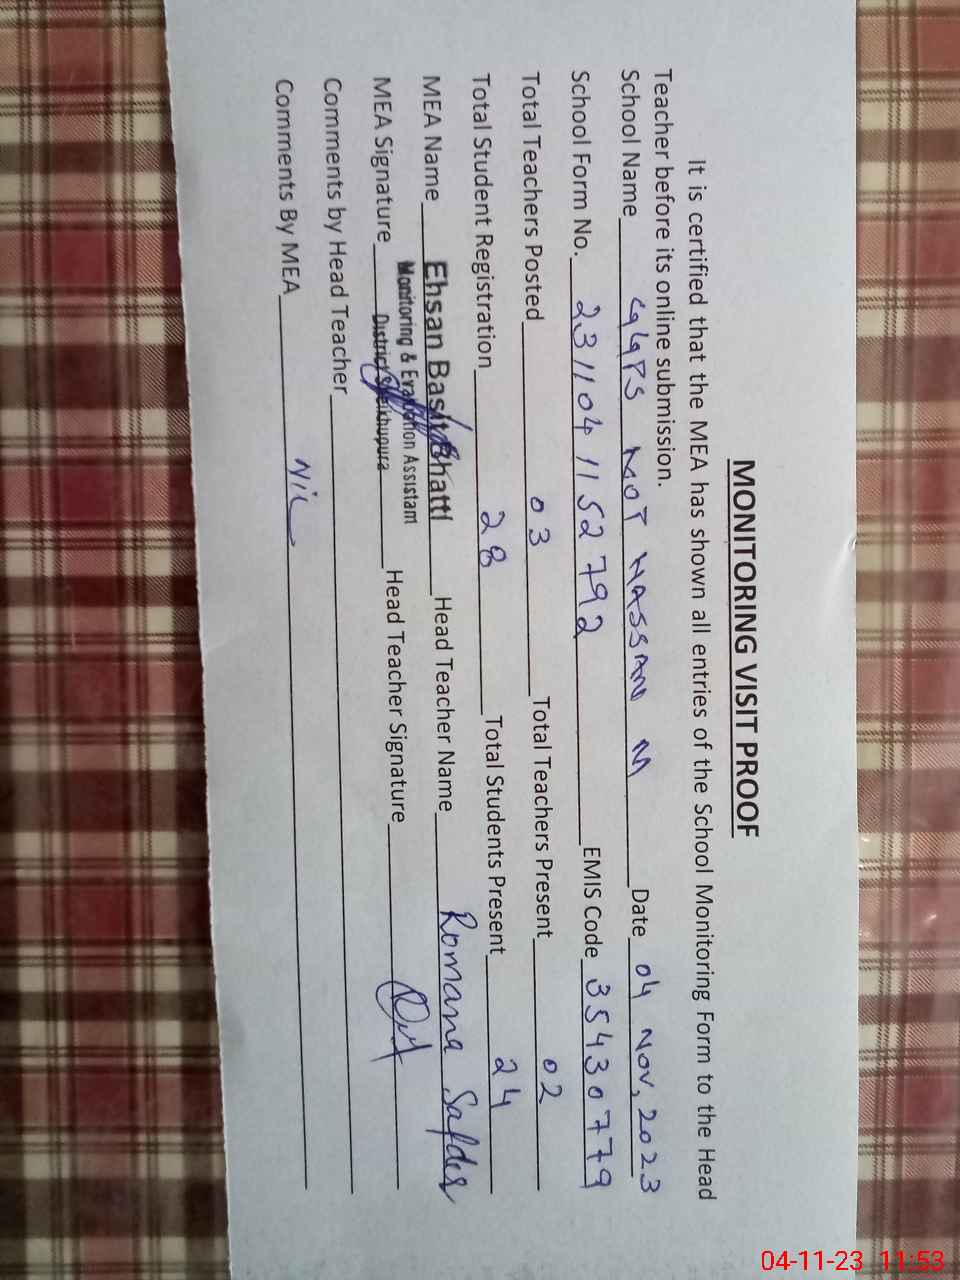 MONITORING VISIT PROOF
It is certified that the MEA has shown all entries of the School Monitoring Form to the Head
Teacher before its online submission.
School Name GGPS KOT HASSAN M Date 04 Nov, 2023
School Form No. 231104 1152792 EMIS Code 35430779
Total Teachers Posted 03 Total Teachers Present 02
Total Student Registration 28 Total Students Present 24
MEA Name Ehsan Basit Bhatti Head Teacher Name Romana Safder
Monitoring & Evaluation Assistant
MEA Signature District Sheikhupura Head Teacher Signature
Comments by Head Teacher
Comments By MEA Nil
04-11-23 11:53